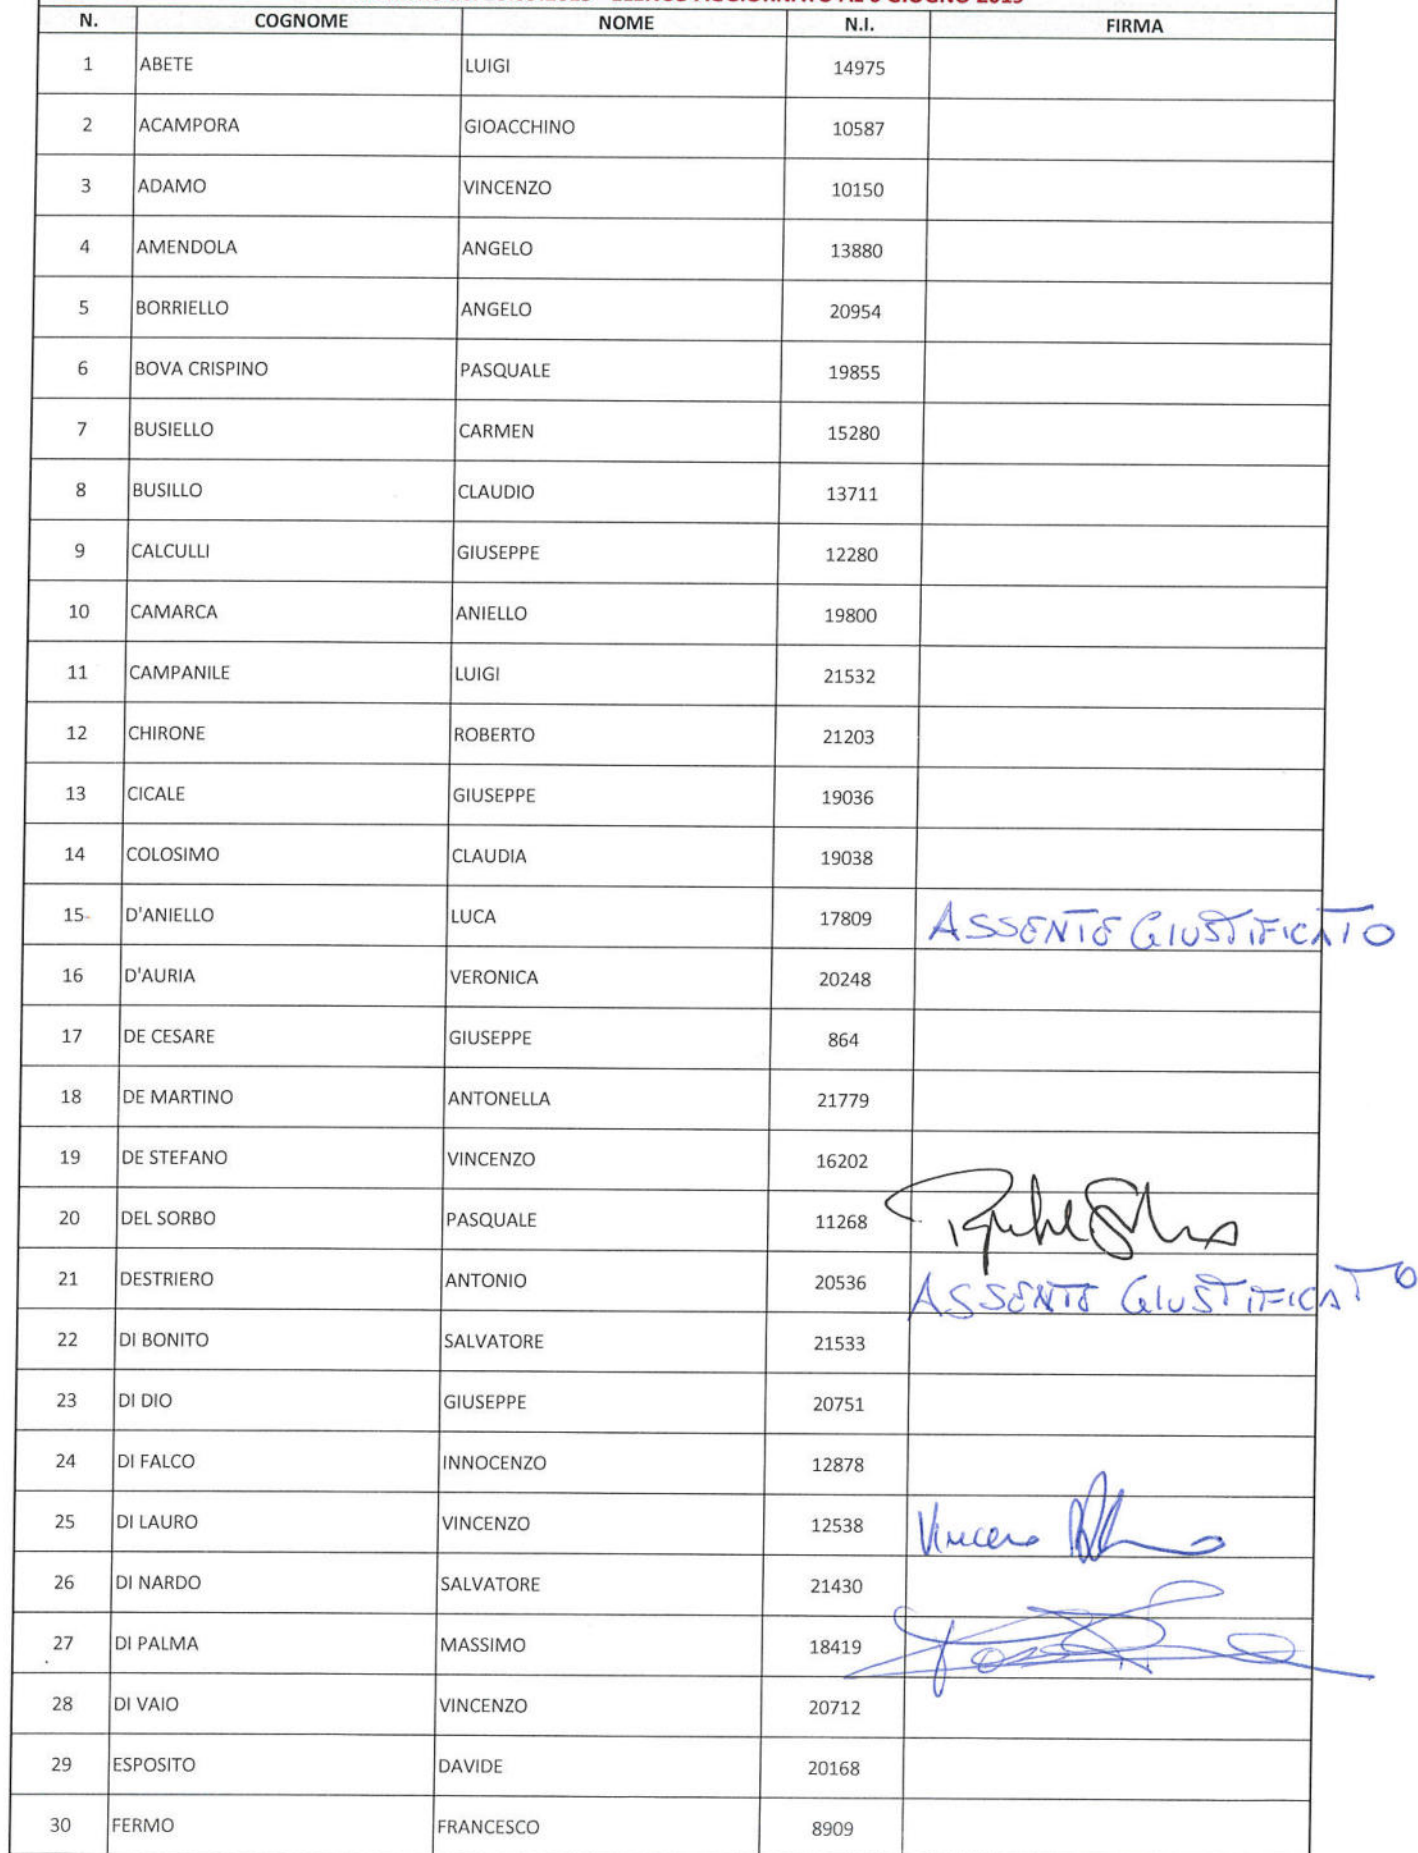 ELENCO AGGIORNATO AL 6 GIUGNO 2019
N. COGNOME NOME N.I. FIRMA
1 ABETE LUIGI 14975
2 ACAMPORA GIOACCHINO 10587
3 ADAMO VINCENZO 10150
4 AMENDOLA ANGELO 13880
5 BORRIELLO ANGELO 20954
6 BOVA CRISPINO PASQUALE 19855
7 BUSIELLO CARMEN 15280
8 BUSILLO CLAUDIO 13711
9 CALCULLI GIUSEPPE 12280
10 CAMARCA ANIELLO 19800
11 CAMPANILE LUIGI 21532
12 CHIRONE ROBERTO 21203
13 CICALE GIUSEPPE 19036
14 COLOSIMO CLAUDIA 19038
15 D'ANIELLO LUCA 17809 ASSENTE GIUSTIFICATO
16 D'AURIA VERONICA 20248
17 DE CESARE GIUSEPPE 864
18 DE MARTINO ANTONELLA 21779
19 DE STEFANO VINCENZO 16202
20 DEL SORBO PASQUALE 11268
21 DESTRIERO ANTONIO 20536 ASSENTE GIUSTIFICATO
22 DI BONITO SALVATORE 21533
23 DI DIO GIUSEPPE 20751
24 DI FALCO INNOCENZO 12878
25 DI LAURO VINCENZO 12538 Vincenzo
26 DI NARDO SALVATORE 21430
27 DI PALMA MASSIMO 18419
28 DI VAIO VINCENZO 20712
29 ESPOSITO DAVIDE 20168
30 FERMO FRANCESCO 8909